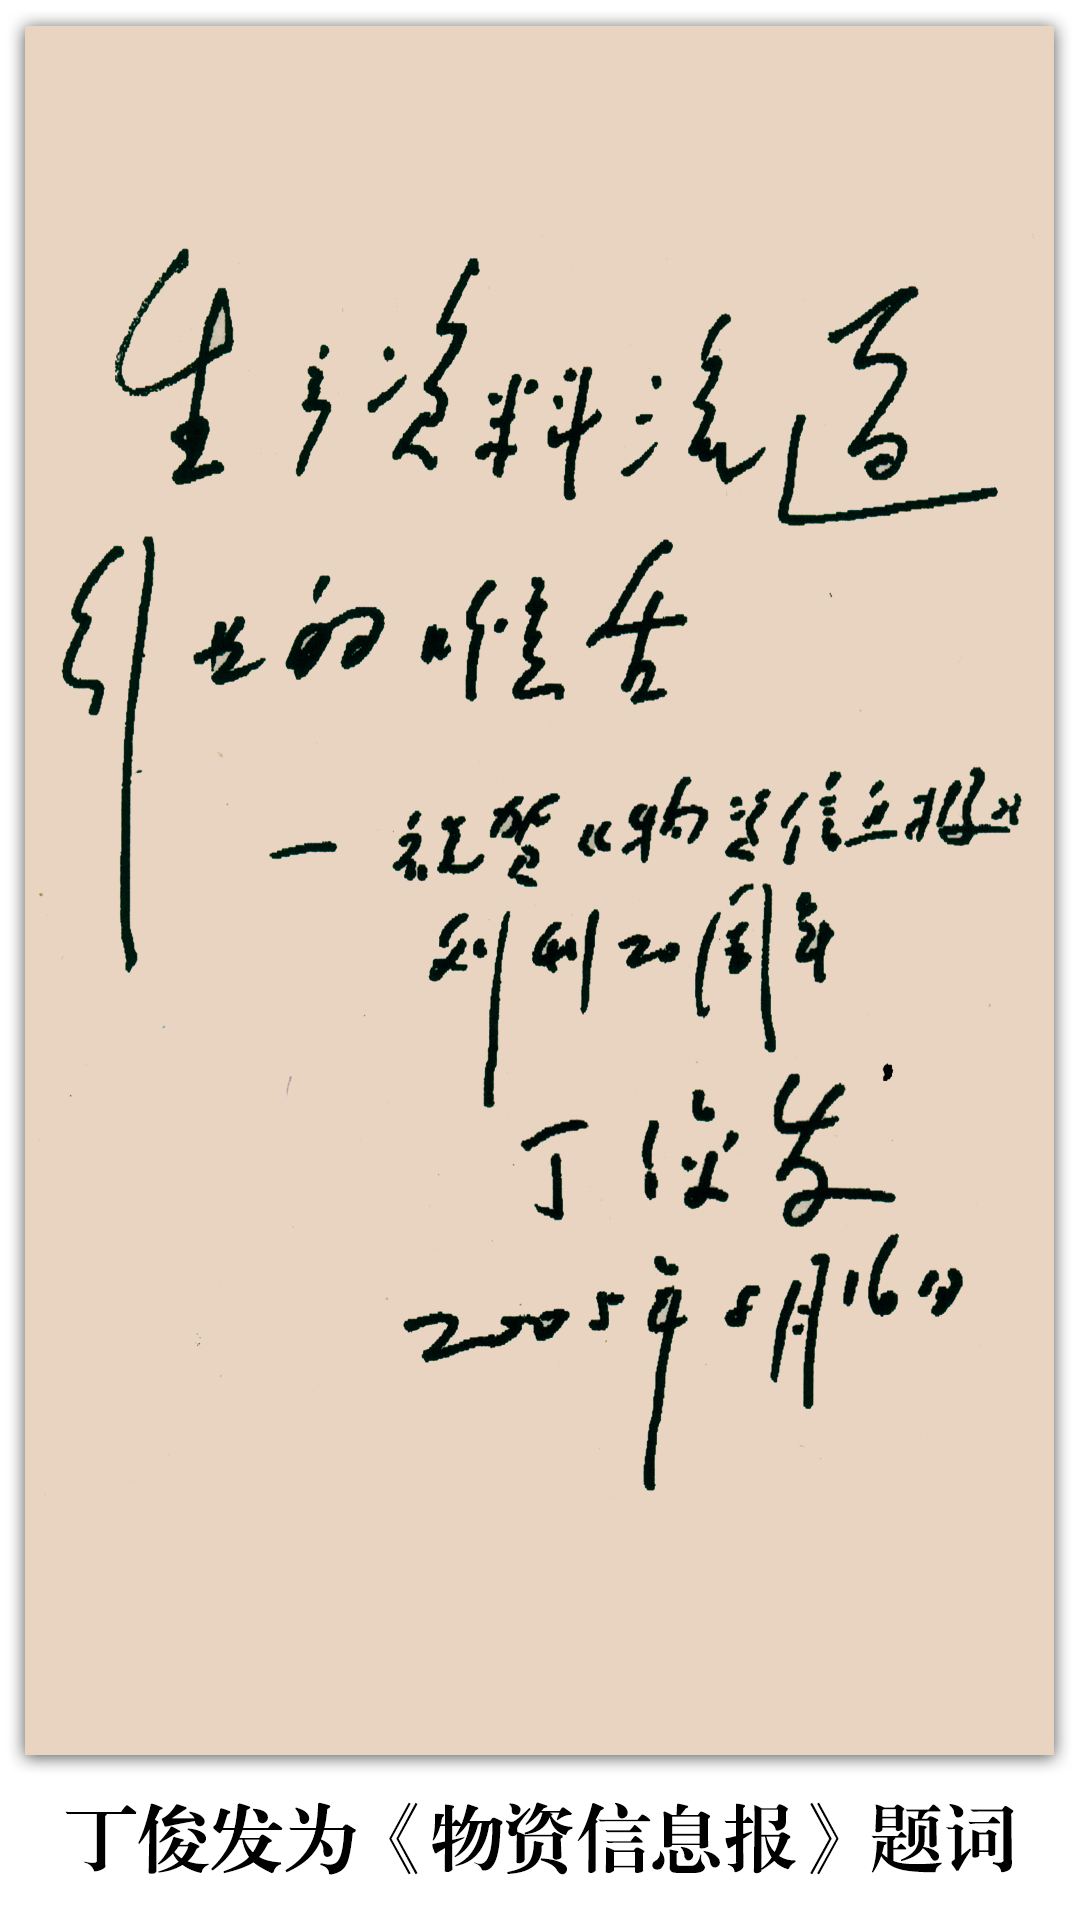 生产资料流通
行业的喉舌
— 祝贺《物资信息报》
创刊20周年
丁俊发
2005年8月16日
丁俊发为《物资信息报》题词